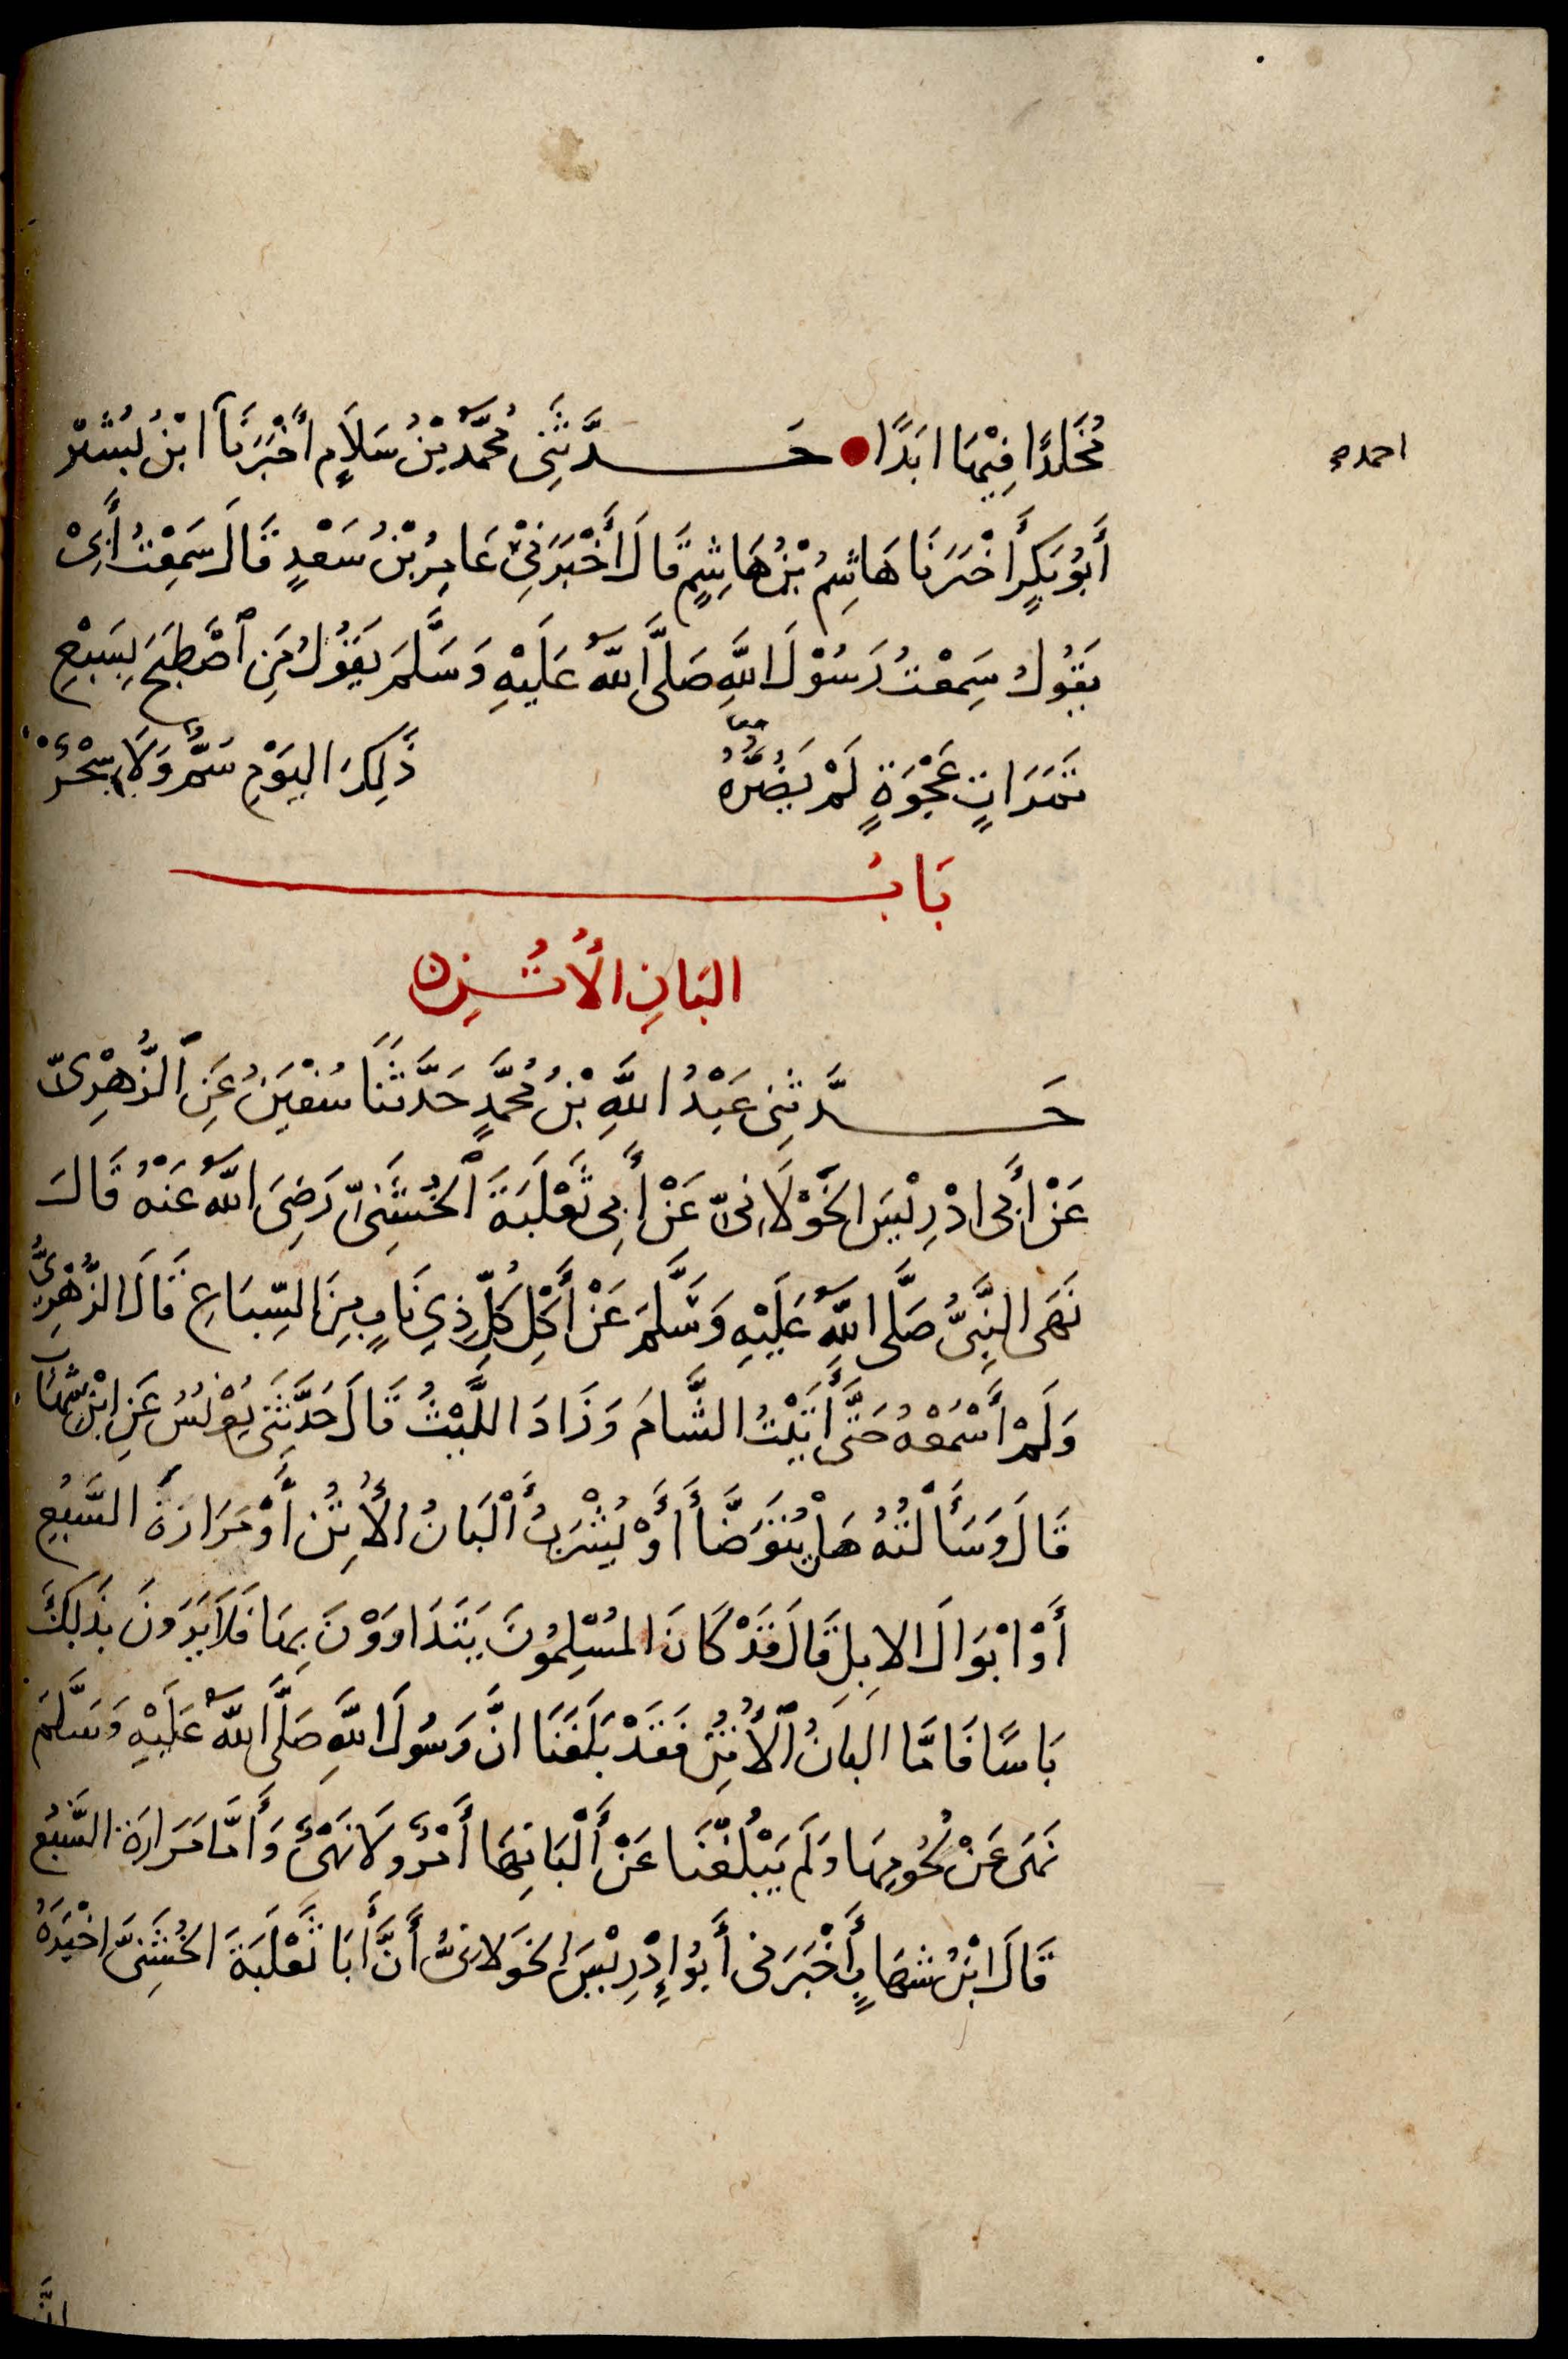 مُخَلَّدًا فِيْهَا ابَدًا حَدَّثَنِي مُحَمَّدُ بْنُ سَلَامٍ أَخْبَرَنَا ابْنُ بُشْر
احمد صح
أَبُو بَكْرٍ أَخْبَرَنَا هَاشِمُ بْنُ هَاشِمٍ قَالَ أَخْبَرَنِيْ عَامِرُ بْنُ سَعْدٍ قَالَ سَمِعْتُ أَبِيْ
يَقُولُ سَمِعْتُ رَسُوْلَ اللَّهِ صَلَّى اللَّهُ عَلَيْهِ وَسَلَّمَ يَقُوْلُ مَنِ ٱصْطَبَحَ بِسَبْعِ
تَمَرَاتٍ عَجْوَةٍ لَمْ يَضُرُّهُ ذَلِكَ اليَوْمِ سَمٌّ وَلَا سِحْرٌ
بَابُ
البَانِ الْأُتُنِ
حَدَّثَنِي عَبْدُ اللَّهِ بْنُ مُحَمَّدٍ حَدَّثَنَا سُفْيَنُ عَنِ ٱلزُّهْرِىِّ
عَنْ أَبِي ادْرِيْسَ الخَوْلَانِىِّ عَنْ أَبِي ثَعْلَبَةَ ٱلخُشَنِىِّ رَضِىَ اللَّهُ عَنْهُ قَالَ
نَهَى النَّبِىُّ صَلَّى اللَّهُ عَلَيْهِ وَسَّلَمَ عَنْ أَكْلِ كُلِّ ذِي نَابٍ مِنَ السِّبَاعِ قَالَ الزُّهْرِىُّ
وَلَمْ أَسْمَعْهُ حَتَّى أَتَيْتُ الشَّامَ وَزَادَ اللَّيْثُ قَالَ حَدَّثَنِي يُوْنُسُ عَنِ ابْنِ شِهَابٍ
قَالَ وَسَأَلْتُهُ هَلْ يُتَوَضَّأُ أَوْ يُشْرَبُ أَلْبَانُ الأُتُنِ أَوْ مَرَارَةُ السَّبُعِ
أَوْ ابْوَالَ الابِلِ قَالَ قَدْ كَانَ المُسْلِمُونَ يَتَدَاوَوْنَ بِهَا فَلَا يَرَوْنَ بِذَلِكَ
بَاسًا فَامَّا البَانُ ٱلْأُتُنِ فَقَدْ بَلَغَنَا انَّ رَسُولَ اللَّهِ صَلَّى اللَّهُ عَلَيْهِ وَسَلَّمَ
نَهَى عَنْ لُحُومِهَا وَلَم يَبْلُغْنَا عَنْ أَلْبَانِهَا أَمْرٌ وَلَا نَهْىٌ وَأَمَّا مَرَارَةُ السَّبُعِ
قَالَ ابْنُ شِهَابٍ أَخْبَرَنِى أَبُو إِدْرِيْسَ الخَوْلَانِىُّ أَنَّ أَبَا ثَعْلَبَةَ الخُشَنِىَّ اخْبَرَهُ
انَّ